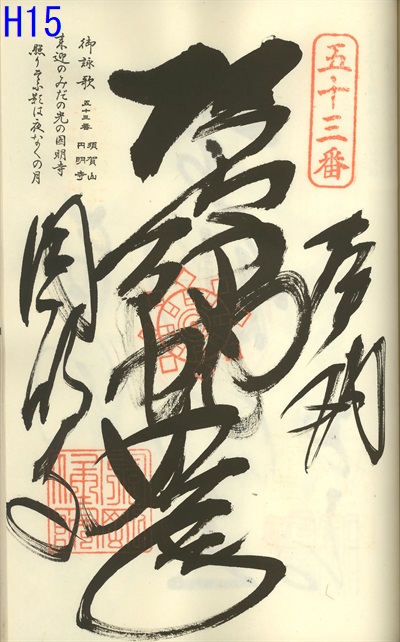 H15
五十三番
奉納
圓明寺
御詠歌 五十三番 須賀山 円明寺
来迎のみだの光の圓明寺
照りそふ影は夜な〱の月